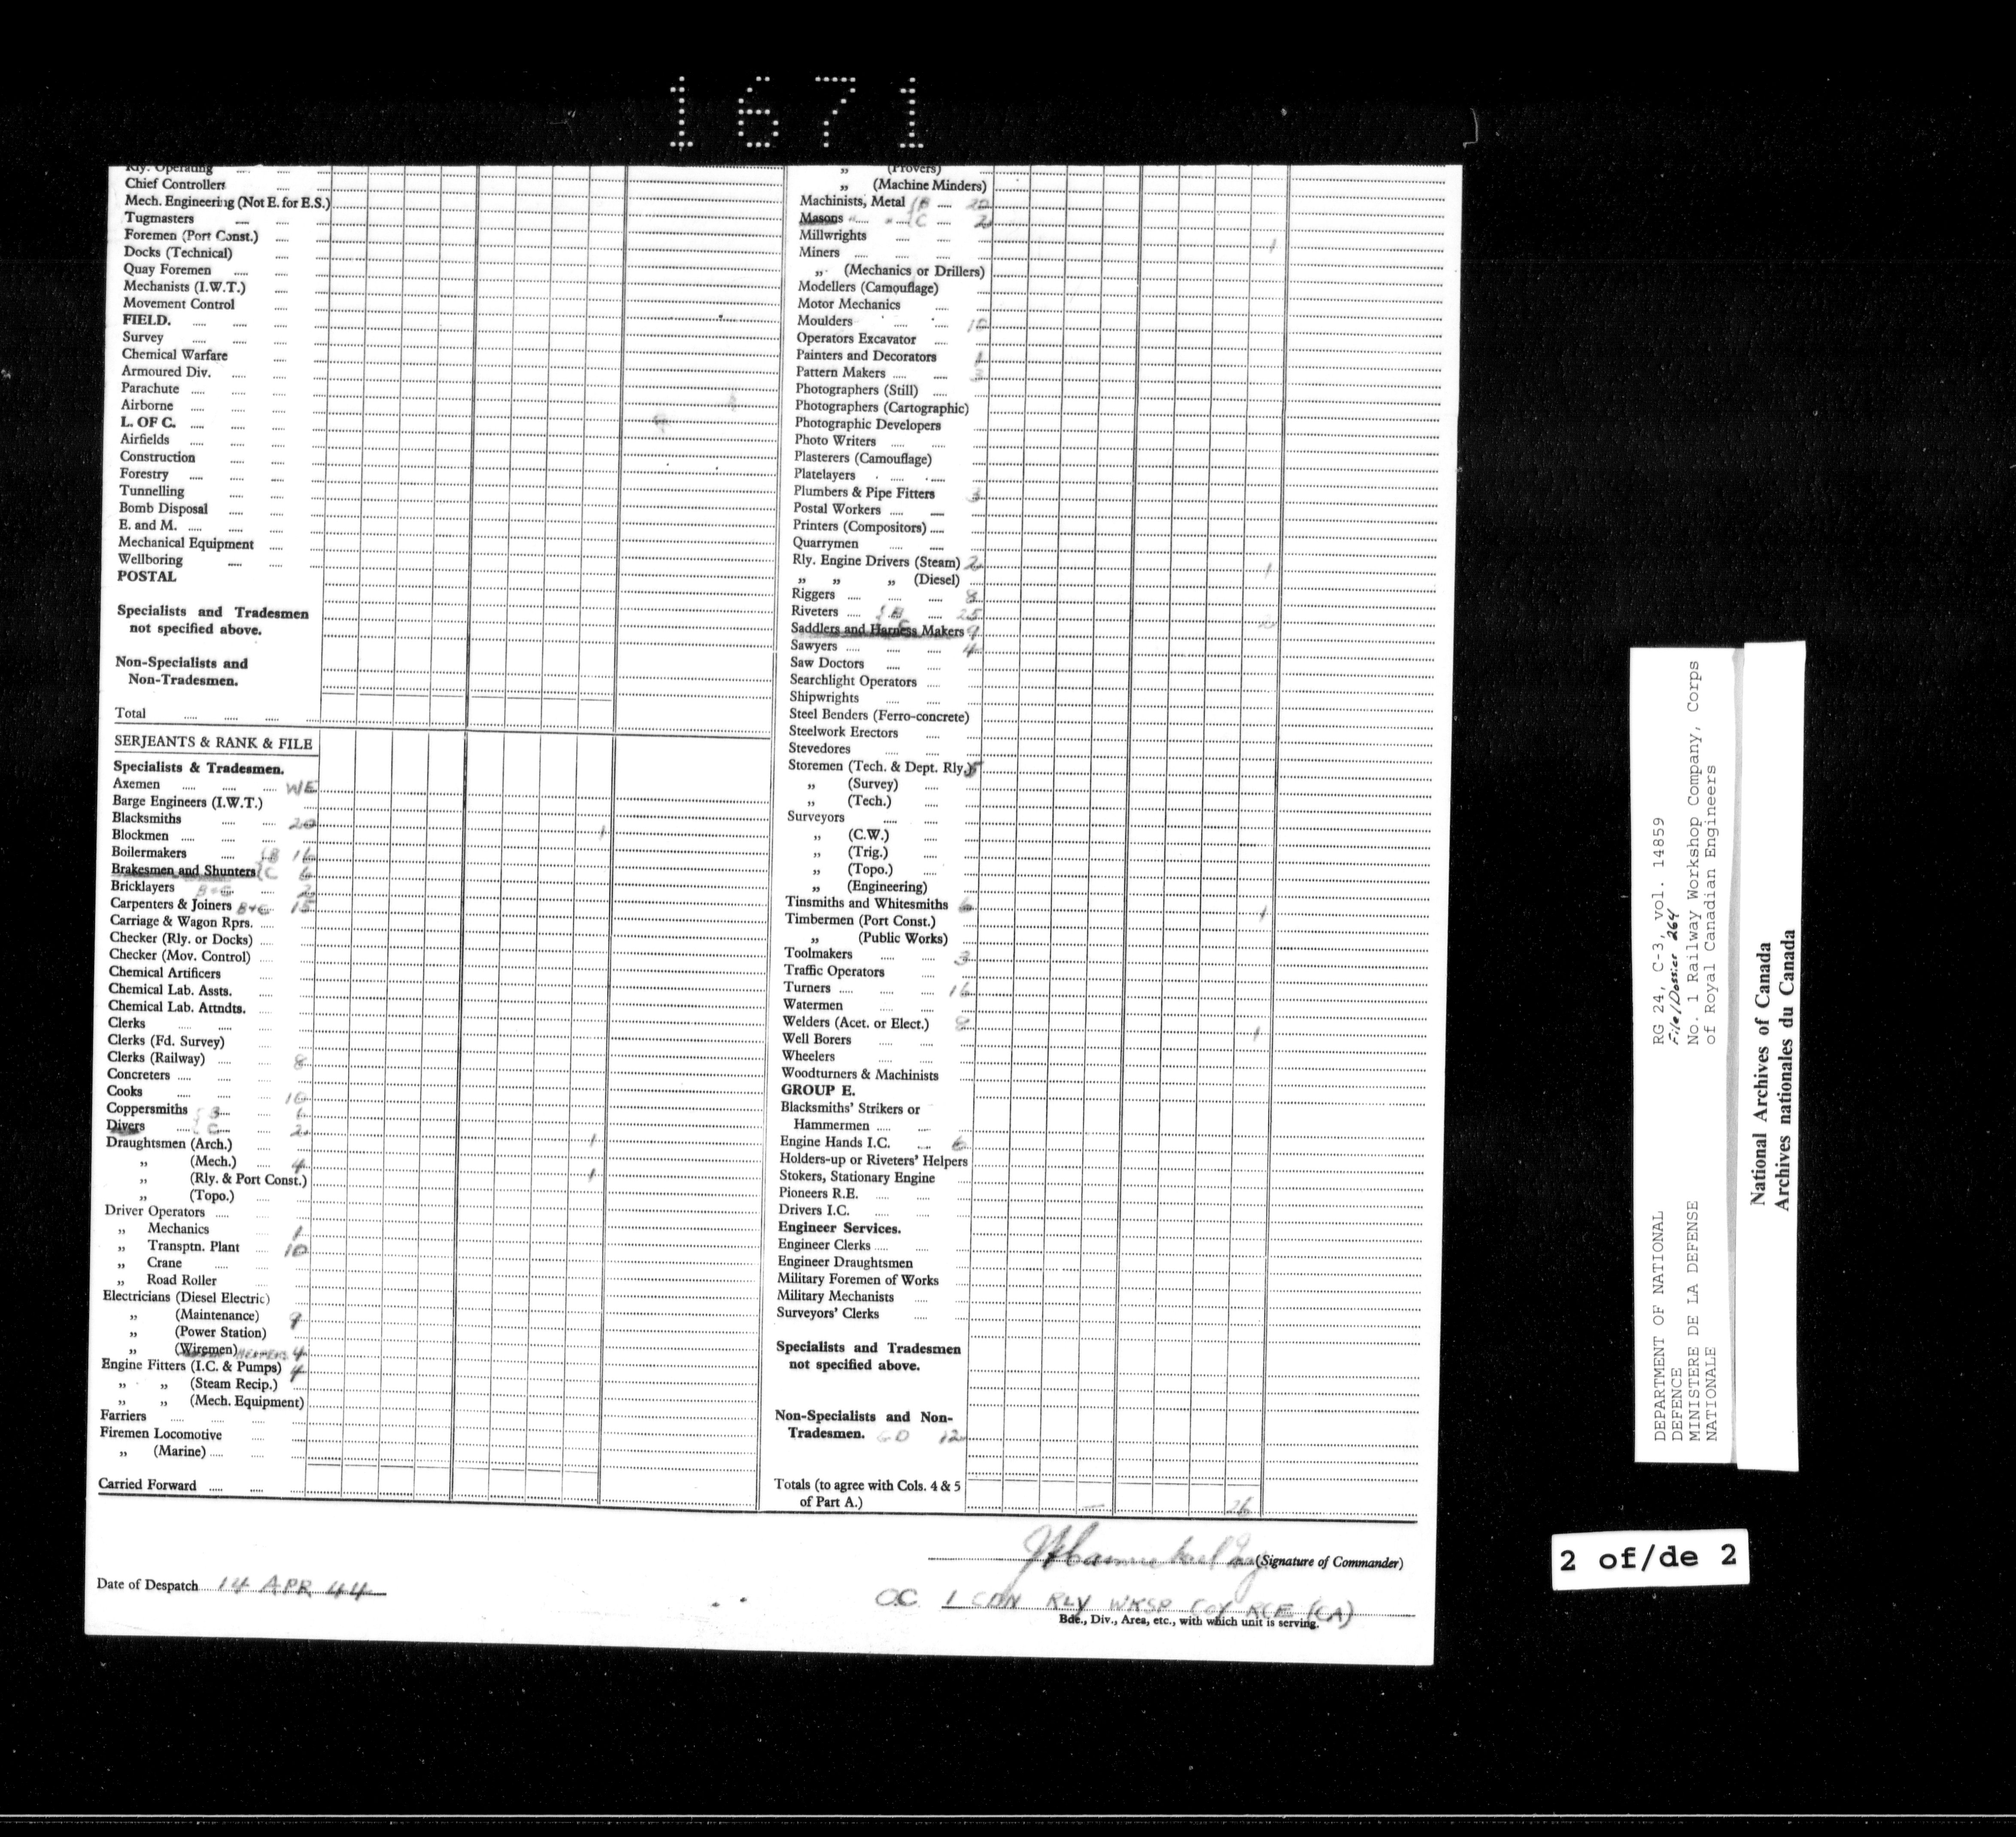 1671
Rly. Operating
Chief Controllers
Mech. Engineering (Not E. for E.S.)
Tugmasters
Foremen (Port Const.)
Docks (Technical)
Quay Foremen
Mechanists (I.W.T.)
Movement Control
FIELD.
Survey
Chemical Warfare
Armoured Div.
Parachute
Airborne
L. OF C.
Airfields
Construction
Forestry
Tunnelling
Bomb Disposal
E. and M.
Mechanical Equipment
Wellboring
POSTAL
Specialists and Tradesmen
not specified above.
Non-Specialists and
Non-Tradesmen.
Total
SERJEANTS & RANK & FILE
Specialists & Tradesmen.
Axemen WE
Barge Engineers (I.W.T.)
Blacksmiths 20
Blockmen 1
Boilermakers B 16
Brakesmen and Shunters C 6
Bricklayers B+C 2
Carpenters & Joiners B+C 15
Carriage & Wagon Rprs.
Checker (Rly. or Docks)
Checker (Mov. Control)
Chemical Artificers
Chemical Lab. Assts.
Chemical Lab. Attndts.
Clerks
Clerks (Fd. Survey)
Clerks (Railway) 8
Concreters
Cooks 16
Coppersmiths B
Divers C 2
Draughtsmen (Arch.) 1
„ (Mech.) 4
„ (Rly. & Port Const.) 1
„ (Topo.)
Driver Operators
„ Mechanics 1
„ Transptn. Plant 10
„ Crane
„ Road Roller
Electricians (Diesel Electric)
„ (Maintenance) 9
„ (Power Station)
„ (Wiremen) 4
Engine Fitters (I.C. & Pumps) 4
„ „ (Steam Recip.)
„ „ (Mech. Equipment)
Farriers
Firemen Locomotive
„ (Marine)
Carried Forward
„ (Provers)
„ (Machine Minders)
Machinists, Metal B 20
Masons „ „ C 2
Millwrights 1
Miners
„ (Mechanics or Drillers)
Modellers (Camouflage)
Motor Mechanics
Moulders 10
Operators Excavator
Painters and Decorators 1
Pattern Makers
Photographers (Still)
Photographers (Cartographic)
Photographic Developers
Photo Writers
Plasterers (Camouflage)
Platelayers
Plumbers & Pipe Fitters 3
Postal Workers
Printers (Compositors)
Quarrymen
Rly. Engine Drivers (Steam) 2 1
„ „ „ (Diesel)
Riggers 8
Riveters B 25
Saddlers and Harness Makers 9
Sawyers 4
Saw Doctors
Searchlight Operators
Shipwrights
Steel Benders (Ferro-concrete)
Steelwork Erectors
Stevedores
Storemen (Tech. & Dept. Rly.) 5
„ (Survey)
„ (Tech.)
Surveyors
„ (C.W.)
„ (Trig.)
„ (Topo.)
„ (Engineering)
Tinsmiths and Whitesmiths 6 1
Timbermen (Port Const.)
„ (Public Works)
Toolmakers 3
Traffic Operators
Turners 16
Watermen
Welders (Acet. or Elect.) 8 1
Well Borers
Wheelers
Woodturners & Machinists
GROUP E.
Blacksmiths' Strikers or
Hammermen
Engine Hands I.C. 6
Holders-up or Riveters' Helpers
Stokers, Stationary Engine
Pioneers R.E.
Drivers I.C.
Engineer Services.
Engineer Clerks
Engineer Draughtsmen
Military Foremen of Works
Military Mechanists
Surveyors' Clerks
Specialists and Tradesmen
not specified above.
Non-Specialists and Non-
Tradesmen. GD 12
Totals (to agree with Cols. 4 & 5
of Part A.) 26
(Signature of Commander)
Date of Despatch 14 APR 44
O.C. 1 CDN RLY WKSP COY RCE (CA)
Bde., Div., Area, etc., with which unit is serving.
DEPARTMENT OF NATIONAL
DEFENCE
MINISTERE DE LA DEFENSE
NATIONALE
RG 24, C-3, vol. 14859
File/Dossier 264
No. 1 Railway Workshop Company, Corps
of Royal Canadian Engineers
National Archives of Canada
Archives nationales du Canada
2 of/de 2